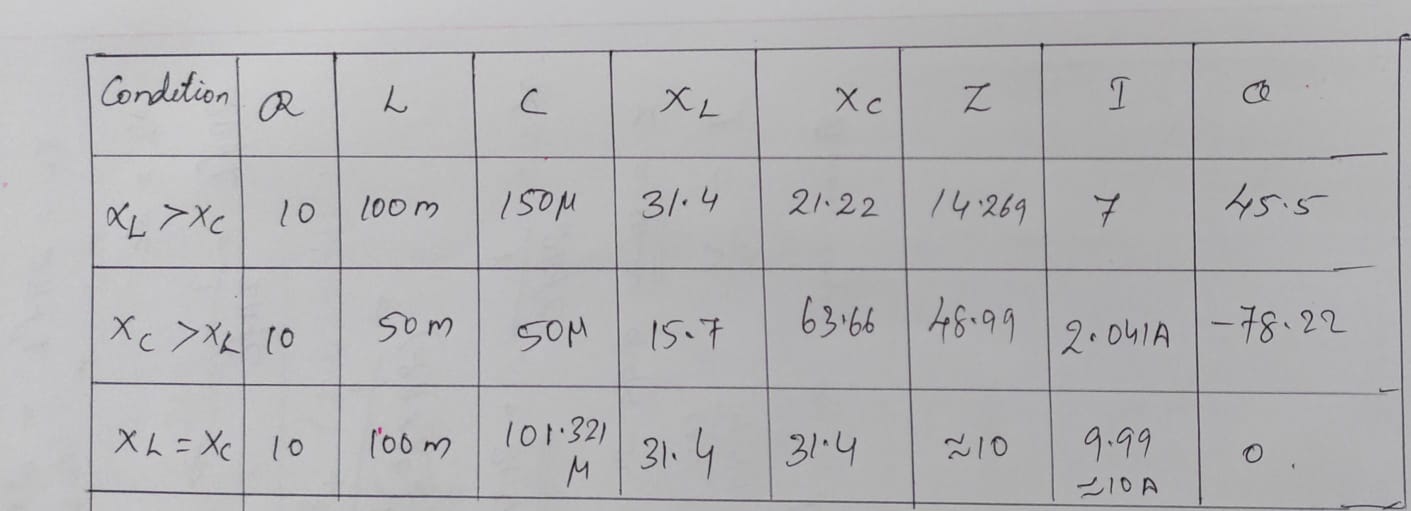 Condition R L C XL XC Z I Q
XL >XC 10 100m 150μ 31.4 21.22 14.269 7 45.5
XC >XL 10 50m 50μ 15.7 63.66 48.99 2.041A -78.22
XL = XC 10 100m 101.321 31.4 31.4 ≈10 9.99 0.
μ ≈10A